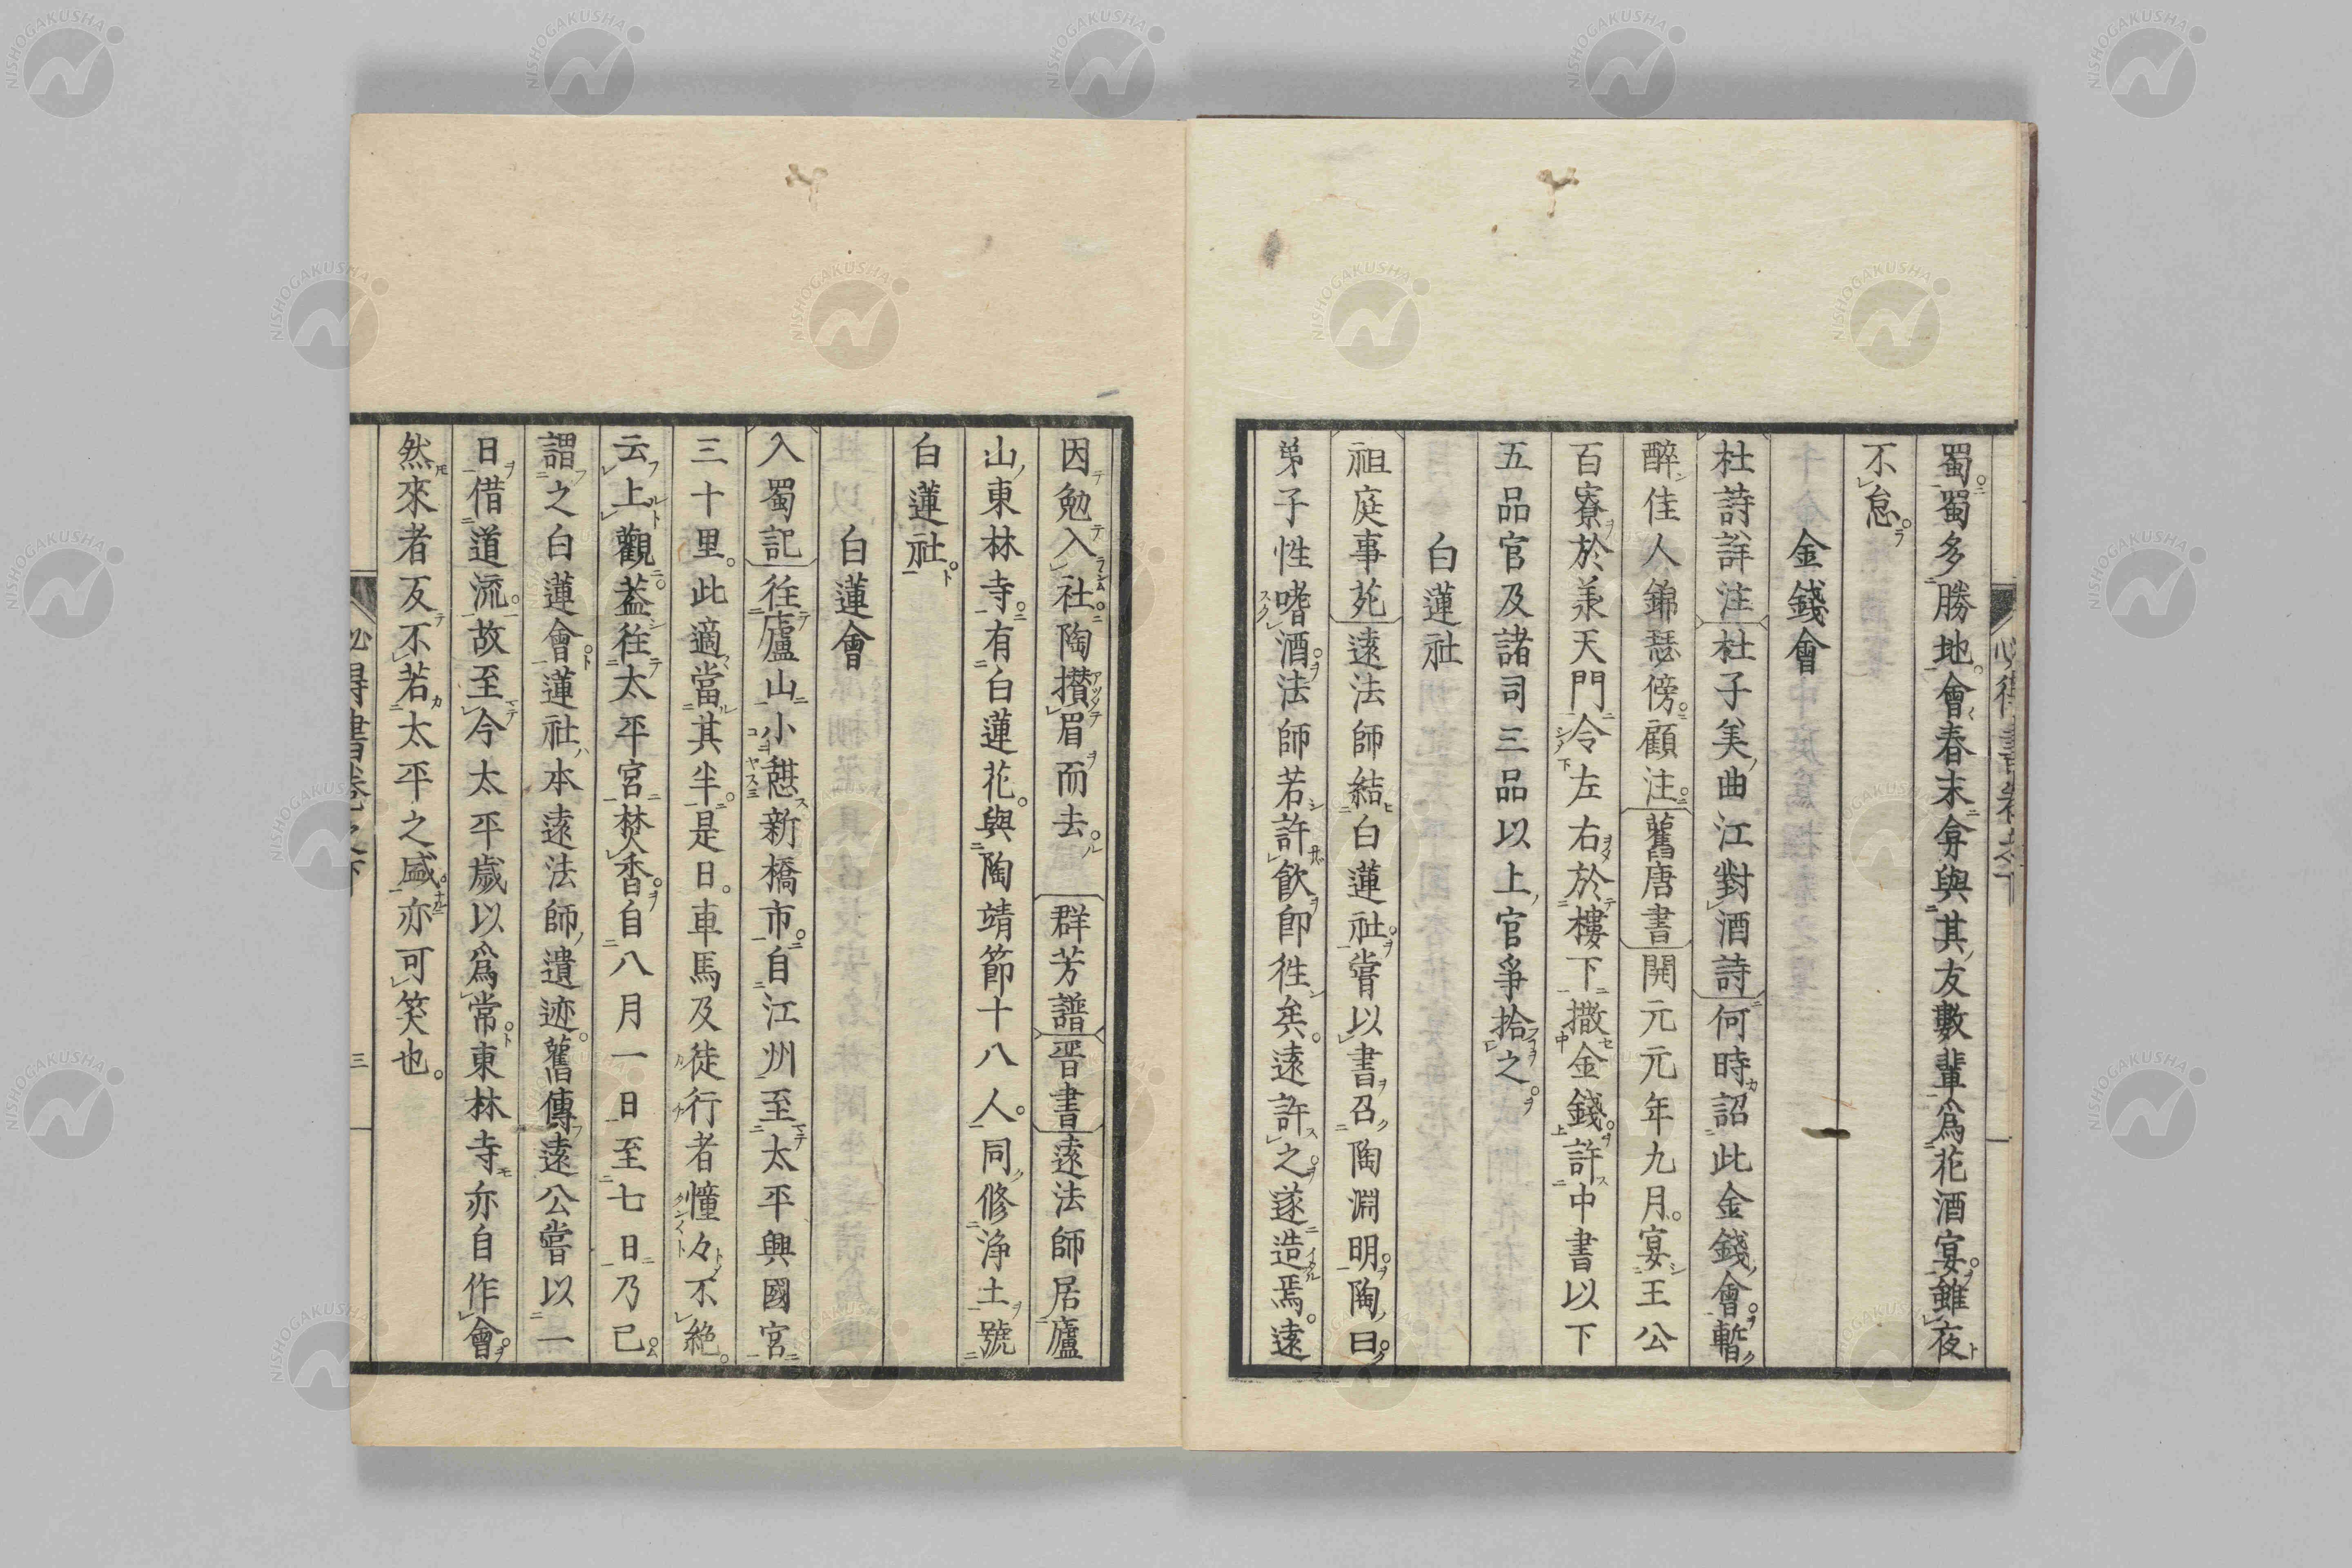 蜀蜀多勝地會春末弇與其友數輩爲花酒宴雖夜
不怠
金錢會
杜詩詳注杜子美曲江對酒詩何時詔此金錢會暫
醉佳人錦瑟傍顧注舊唐書開元元年九月宴王公
百寮於羕天門令左右於樓下撒金錢許中書以下
五品官及諸司三品以上官爭拾之
白蓮社
祖庭事苑遠法師結白蓮社嘗以書召陶淵明陶曰
弟子性嗜酒法師若許飲卽徃矣遠許之遂造焉遠
因勉入社陶攅眉而去群芳譜晋書遠法師居廬
山東林寺有白蓮花與陶靖節十八人同修浄土號
白蓮社
白蓮會
入蜀記徃廬山小憇新橋市自江州至太平興國宮
三十里此適當其半是日車馬及徒行者憧々不絶
云上觀蓋徃太平宮焚香自八月一日至七日乃已
謂之白蓮會蓮社本遠法師遺迹舊傳遠公嘗以一
日借道流故至今太平歲以爲常東林寺亦自作會
然來者反不若太平之盛亦可笑也
必得書卷之下
三
NISHOGAKUSHA